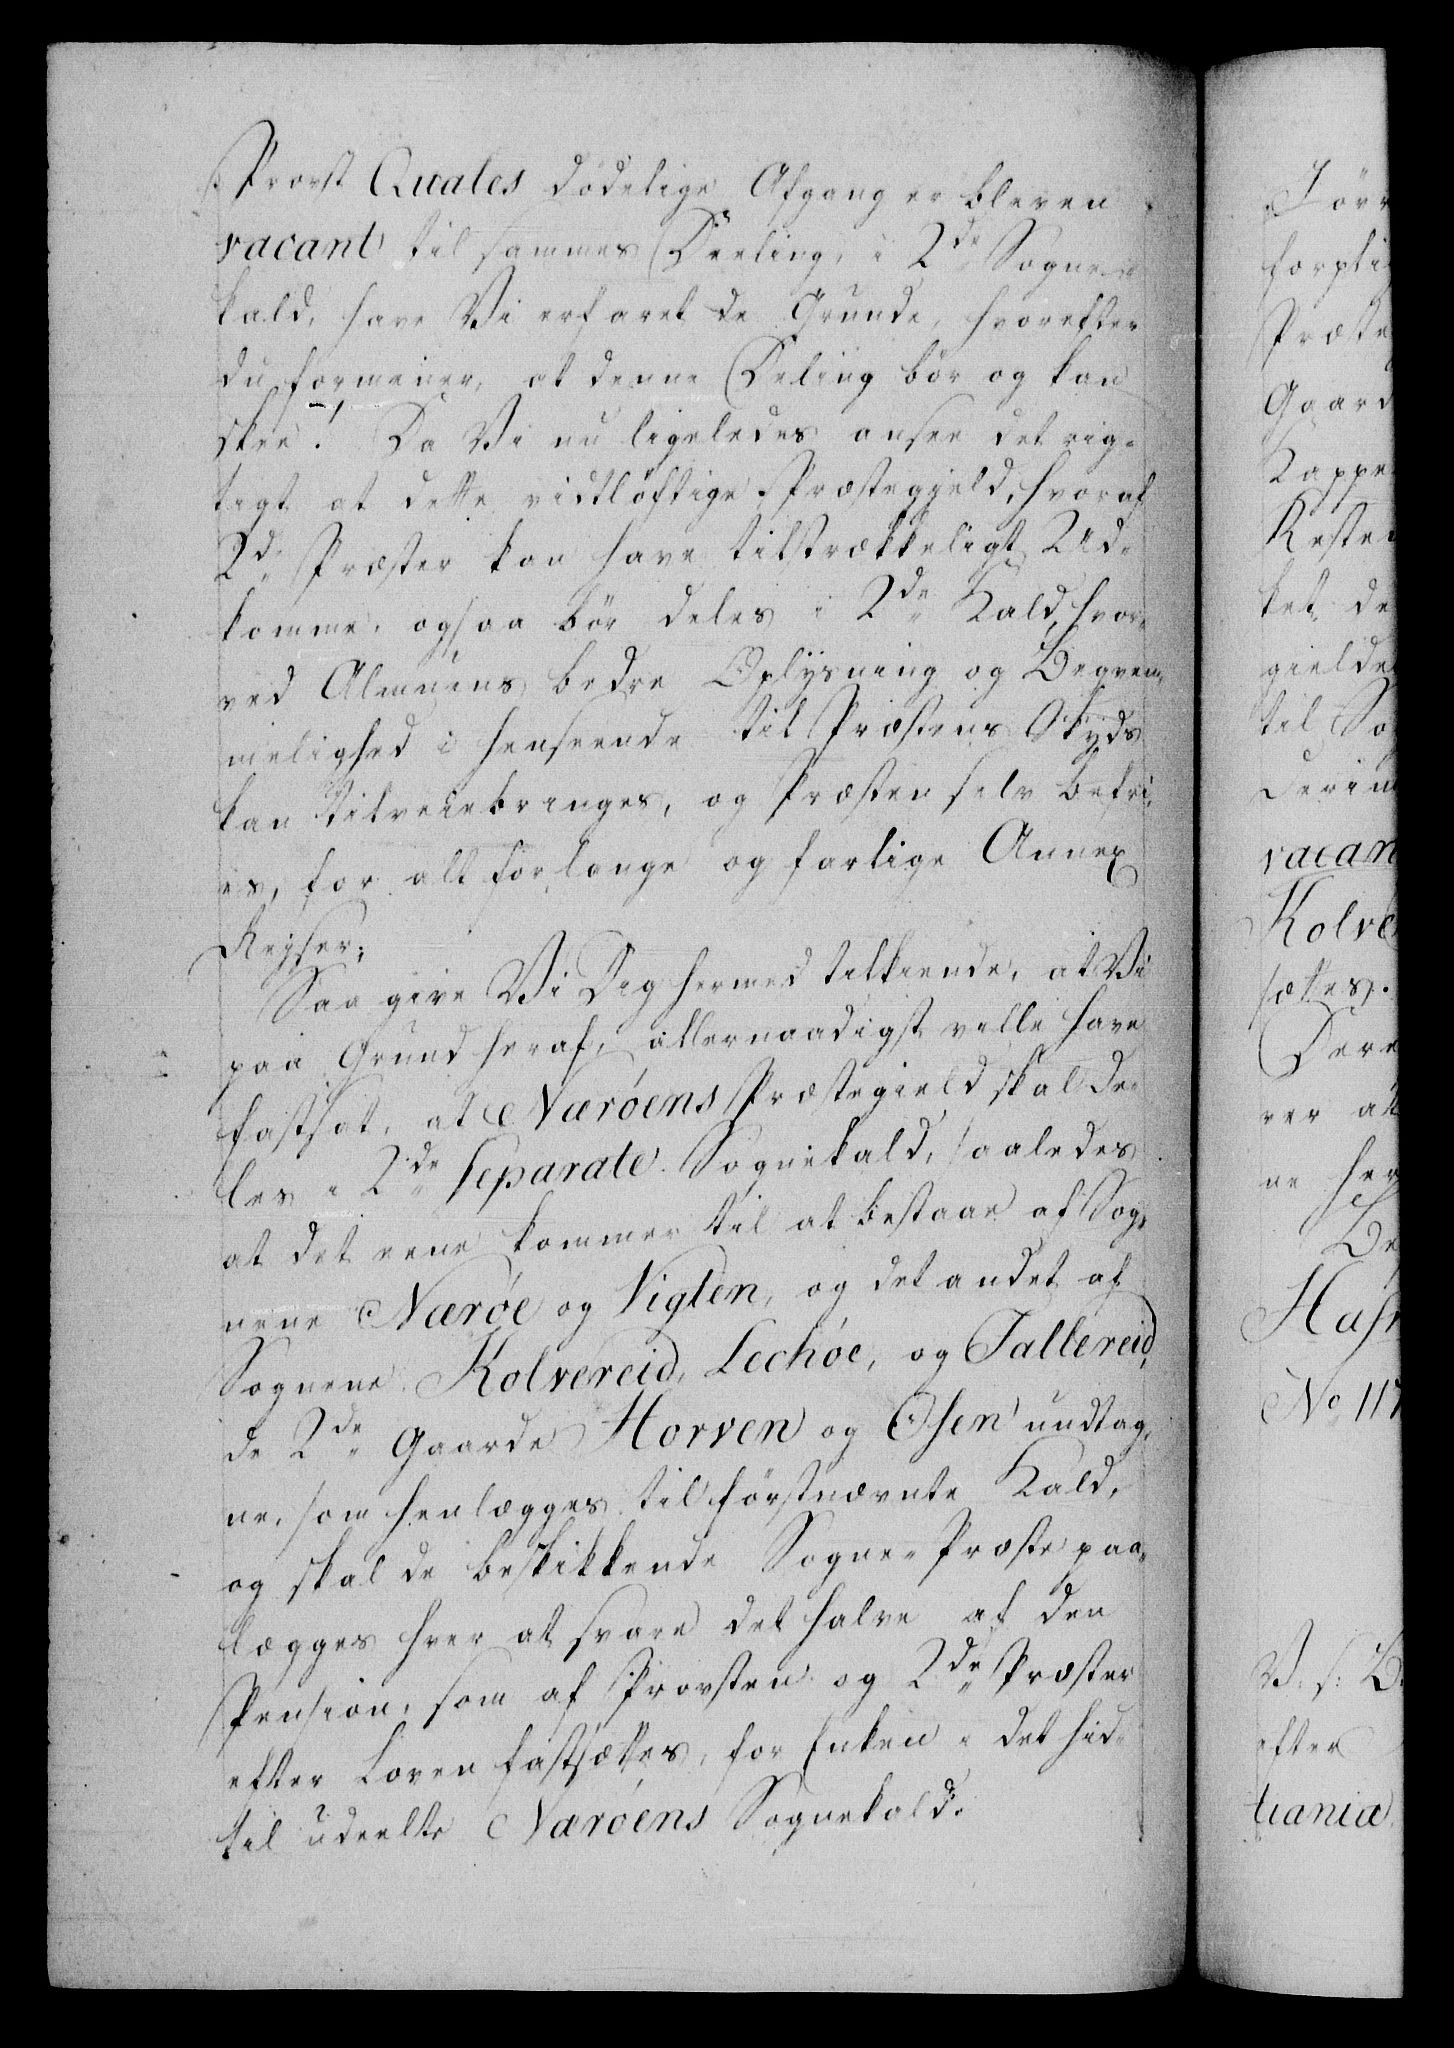 Provst Quales dödelige Afgang er bleven
vacant til sammes Deeling, i 2de Sogne-
kald, have Vi erfaret de Grunde, hvorefter
du formener, at denne Deling bör og kan
skee! Da Vi nu ligeledes ansee det rig-
tigt at dette vidtlöftige Præstegjeld, hvoraf
2de Præster kan have tilstrækkeligt Ud-
komme, ogsaa bör deles i 2de Kald, hvor-
ved Almuens bedre Oplysning og Beqvem-
melighed i henseende til Præstens Skyds
kan tilveiebringes, og Præsten selv befri-
es, for alt for lange og farlige Annex
Rejser;
Saa give Vi Dig hermed tilkiende, at Vi
paa Grund heraf, allernaadigst ville have
fastsat, at Næröens Præstegield skal de-
les i 2de separate Sognekald, saaledes
at det eene kommer til at bestaae af Sog-
nene Næröe og Vigten, og det andet af
Sognene Kolvereid, Lechöe, og Fallereid,
de 2de Gaarde Horven og Osen undtag-
ne, som henlægges til förstnævnte Kald,
og skal de beskikkende Sogne-Præste paa-
lægges hver at svare det halve af den
Pension, som af Provsten og 2de Præster
efter Loven fastsættes, for Enken i det hid-
til udeelte Næröens Sognekald.
Kappe
Gaard
til So
vacan
Kolve
sættes.
No 117
efter
tianiæ